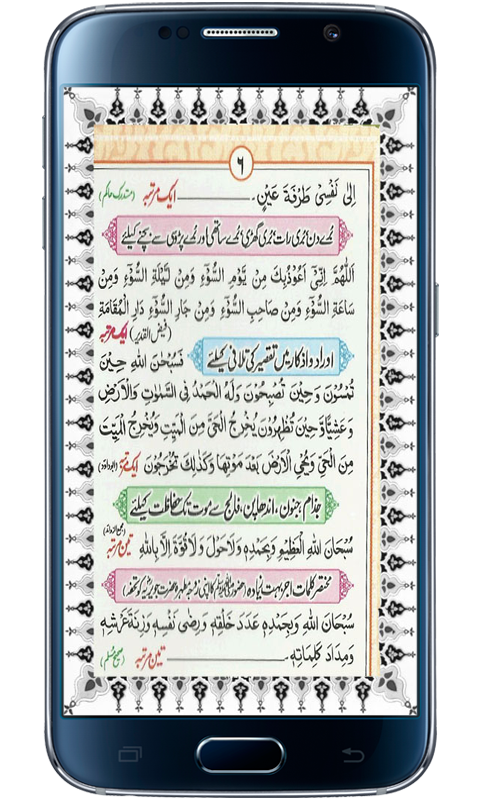 SAMSUNG
٦
اِلٰى نَفْسِىْ طَرْفَةَ عَيْنٍ۔ ایک مرتبہ (مستدرک حاکم)
بُرے دن بُری رات بُری گھڑی بُرے ساتھی اور بُرے پڑوسی سے بچنے کیلئے
اَللّٰهُمَّ اِنِّىْ اَعُوْذُبِكَ مِنْ يَّوْمِ السُّوْٓءِ وَمِنْ لَّيْلَةِ السُّوْٓءِ وَمِنْ
سَاعَةِ السُّوْٓءِ وَمِنْ صَاحِبِ السُّوْٓءِ وَمِنْ جَارِ السُّوْٓءِ فِىْ دَارِ الْمُقَامَةِ
(فیض القدیر) ایک مرتبہ
اوراد و اذکار میں تقصیر کی تلافی کیلئے
فَسُبْحٰنَ اللّٰهِ حِيْنَ
تُمْسُوْنَ وَحِيْنَ تُصْبِحُوْنَ وَلَهُ الْحَمْدُ فِى السَّمٰوٰتِ وَالْاَرْضِ
وَعَشِيًّا وَّحِيْنَ تُظْهِرُوْنَ يُخْرِجُ الْحَىَّ مِنَ الْمَيِّتِ وَيُخْرِجُ الْمَيِّتَ
مِنَ الْحَىِّ وَيُحْىِ الْاَرْضَ بَعْدَ مَوْتِهَا وَكَذٰلِكَ تُخْرَجُوْنَ ایک مرتبہ (ابوداؤد)
جذام جنون، اندھاپن، فالج سے موت تک حفاظت کیلئے
سُبْحَانَ اللّٰهِ الْعَظِيْمِ وَبِحَمْدِهٖ وَلَاحَوْلَ وَلَاقُوَّةَ اِلَّا بِاللّٰهِ تین مرتبہ
مختصر کلمات اجر بہت زیادہ
سُبْحَانَ اللّٰهِ وَبِحَمْدِهٖ عَدَدَ خَلْقِهٖ وَرِضٰى نَفْسِهٖ وَزِنَةَ عَرْشِهٖ
وَمِدَادَ كَلِمَاتِهٖ۔ تین مرتبہ (صحیح مسلم)